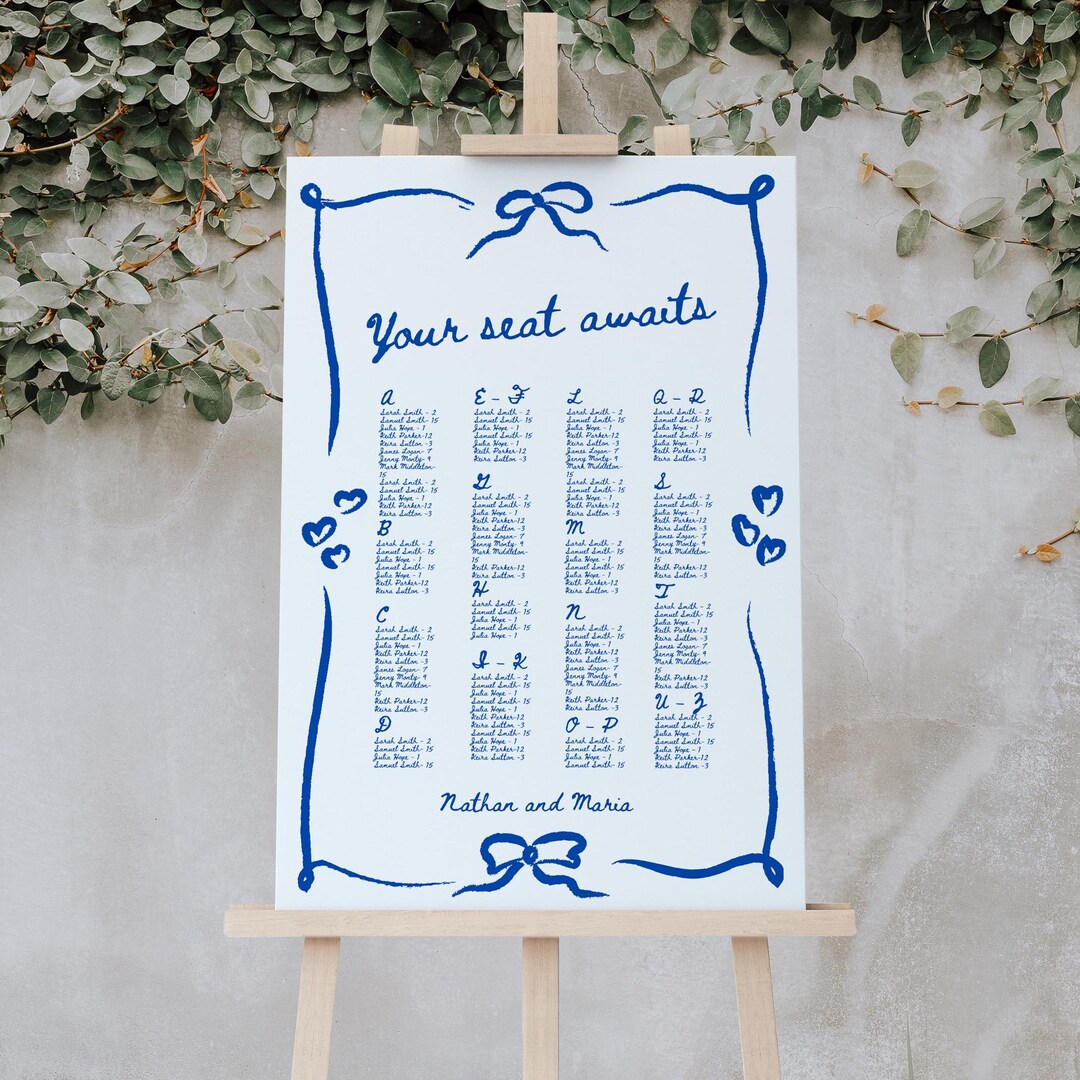 Your seat awaits
A
Sarah Smith - 2
Samuel Smith- 15
Julia Hope - 1
Keith Parker-12
Keira Sutton -3
James Logan- 7
Jenny Monty- 9
Mark Middleton-
15
Sarah Smith - 2
Samuel Smith- 15
Julia Hope - 1
Keith Parker-12
Keira Sutton -3
B
Sarah Smith - 2
Samuel Smith- 15
Julia Hope - 1
Samuel Smith- 15
Julia Hope - 1
Keith Parker-12
Keira Sutton -3
C
Sarah Smith - 2
Samuel Smith- 15
Julia Hope - 1
Keith Parker-12
Keira Sutton -3
James Logan- 7
Jenny Monty- 9
Mark Middleton-
15
Keith Parker-12
Keira Sutton -3
D
Sarah Smith - 2
Samuel Smith- 15
Julia Hope - 1
Samuel Smith- 15
E - F
Sarah Smith - 2
Samuel Smith- 15
Julia Hope - 1
Samuel Smith- 15
Julia Hope - 1
Keith Parker-12
Keira Sutton -3
G
Sarah Smith - 2
Samuel Smith- 15
Julia Hope - 1
Keith Parker-12
Keira Sutton -3
James Logan- 7
Jenny Monty- 9
Mark Middleton-
15
Keith Parker-12
Keira Sutton -3
H
Sarah Smith - 2
Samuel Smith- 15
Julia Hope - 1
Samuel Smith- 15
Julia Hope - 1
I - K
Sarah Smith - 2
Samuel Smith- 15
Julia Hope - 1
Samuel Smith- 15
Julia Hope - 1
Keith Parker-12
Keira Sutton -3
Samuel Smith- 15
Julia Hope - 1
Keith Parker-12
Keira Sutton -3
L
Sarah Smith - 2
Samuel Smith- 15
Julia Hope - 1
Keith Parker-12
Keira Sutton -3
James Logan- 7
Jenny Monty- 9
Mark Middleton-
15
Sarah Smith - 2
Samuel Smith- 15
Julia Hope - 1
Keith Parker-12
Keira Sutton -3
M
Sarah Smith - 2
Samuel Smith- 15
Julia Hope - 1
Samuel Smith- 15
Julia Hope - 1
Keith Parker-12
Keira Sutton -3
N
Sarah Smith - 2
Samuel Smith- 15
Julia Hope - 1
Keith Parker-12
Keira Sutton -3
James Logan- 7
Jenny Monty- 9
Mark Middleton-
15
Keith Parker-12
Keira Sutton -3
O - P
Sarah Smith - 2
Samuel Smith- 15
Julia Hope - 1
Samuel Smith- 15
Q - R
Sarah Smith - 2
Samuel Smith- 15
Julia Hope - 1
Samuel Smith- 15
Julia Hope - 1
Keith Parker-12
Keira Sutton -3
S
Sarah Smith - 2
Samuel Smith- 15
Julia Hope - 1
Keith Parker-12
Keira Sutton -3
James Logan- 7
Jenny Monty- 9
Mark Middleton-
15
Keith Parker-12
Keira Sutton -3
T
Sarah Smith - 2
Samuel Smith- 15
Julia Hope - 1
Keith Parker-12
Keira Sutton -3
James Logan- 7
Jenny Monty- 9
Mark Middleton-
15
Keith Parker-12
Keira Sutton -3
U - Z
Sarah Smith - 2
Samuel Smith- 15
Julia Hope - 1
Samuel Smith- 15
Julia Hope - 1
Keith Parker-12
Keira Sutton -3
Nathan and Maria